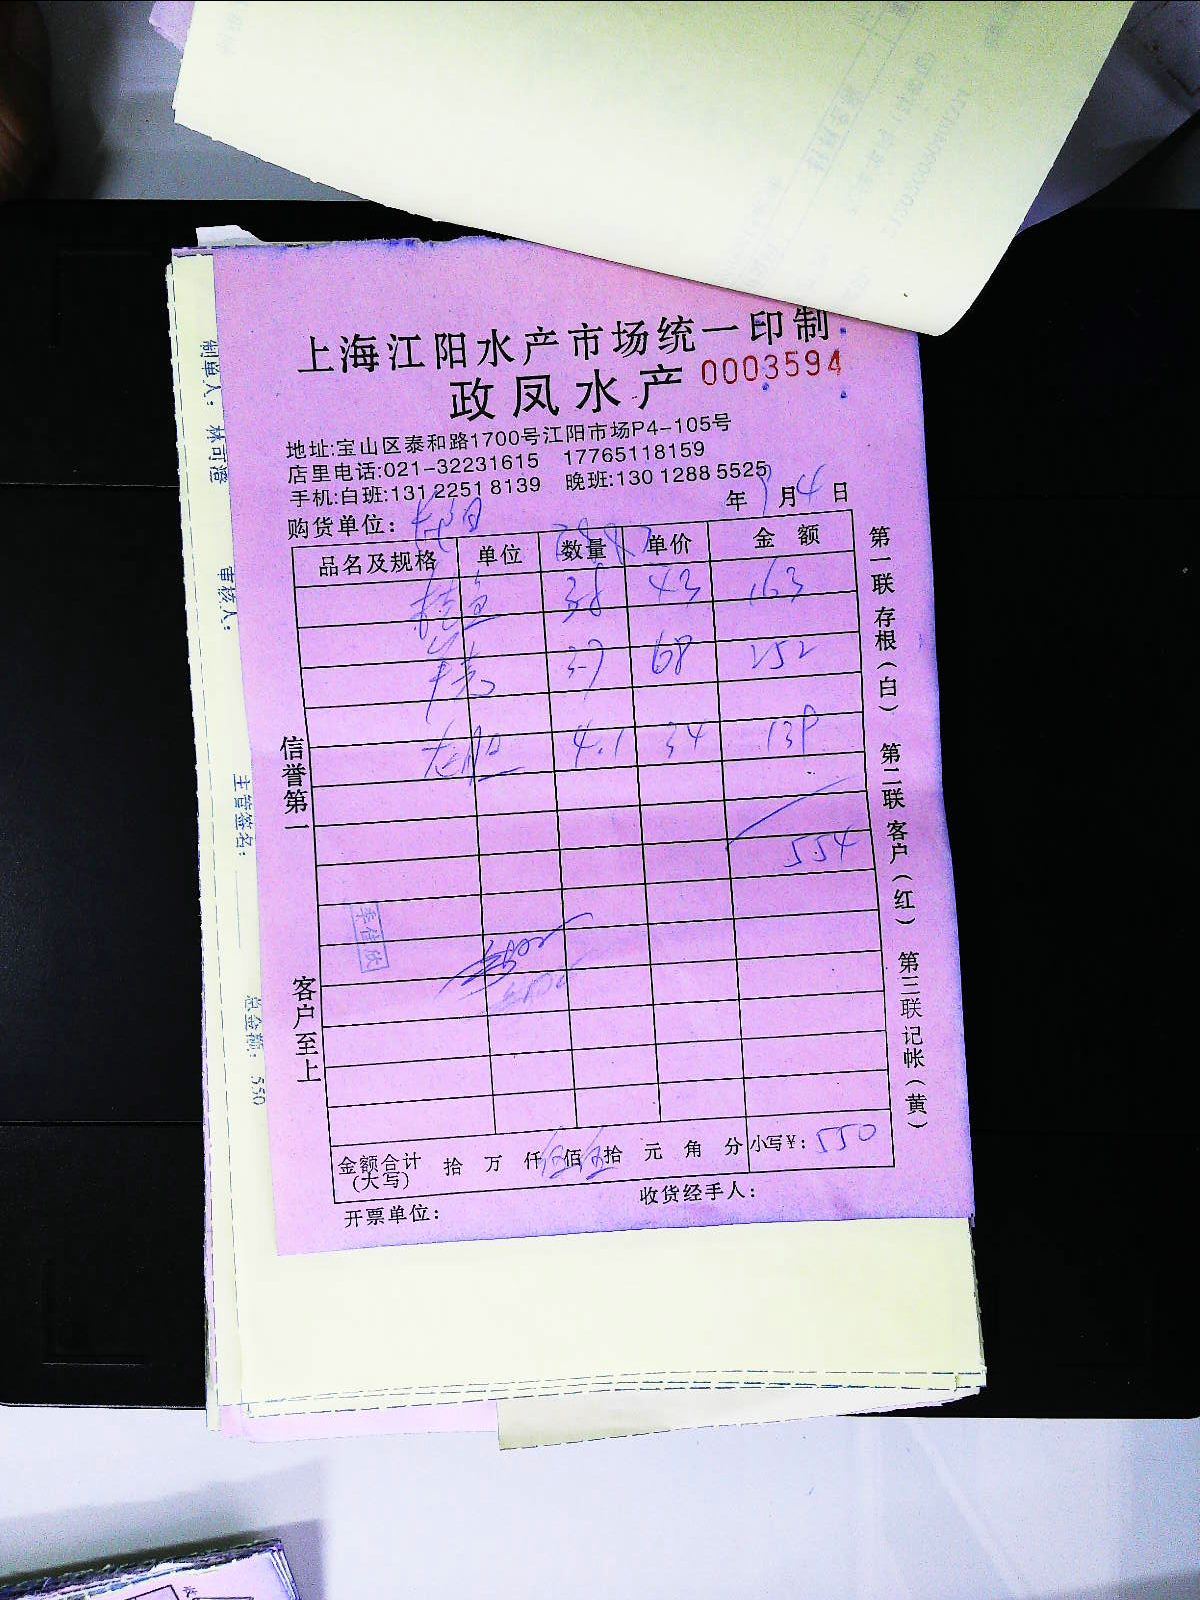 上海江阳水产市场统一印制
政凤水产 0003594
地址:宝山区泰和路1700号江阳市场P4-105号
店里电话:021-32231615 17765118159
手机:白班:131 2251 8139 晚班:130 1288 5525
年9月4日
购货单位:
品名及规格 单位 数量 单价 金额
桂鱼 3.8 43 163
3.7 68 252
龙胆 4.1 34 139
554
金额合计(大写) 拾 万 仟 伍佰伍拾 元 角 分 小写¥: 550
开票单位: 收货经手人:
信誉第一
客户至上
第一联 存根(白) 第二联 客户(红) 第三联 记帐(黄)
制单人: 林可澄
审核人:
主管签名:
总金额: 550